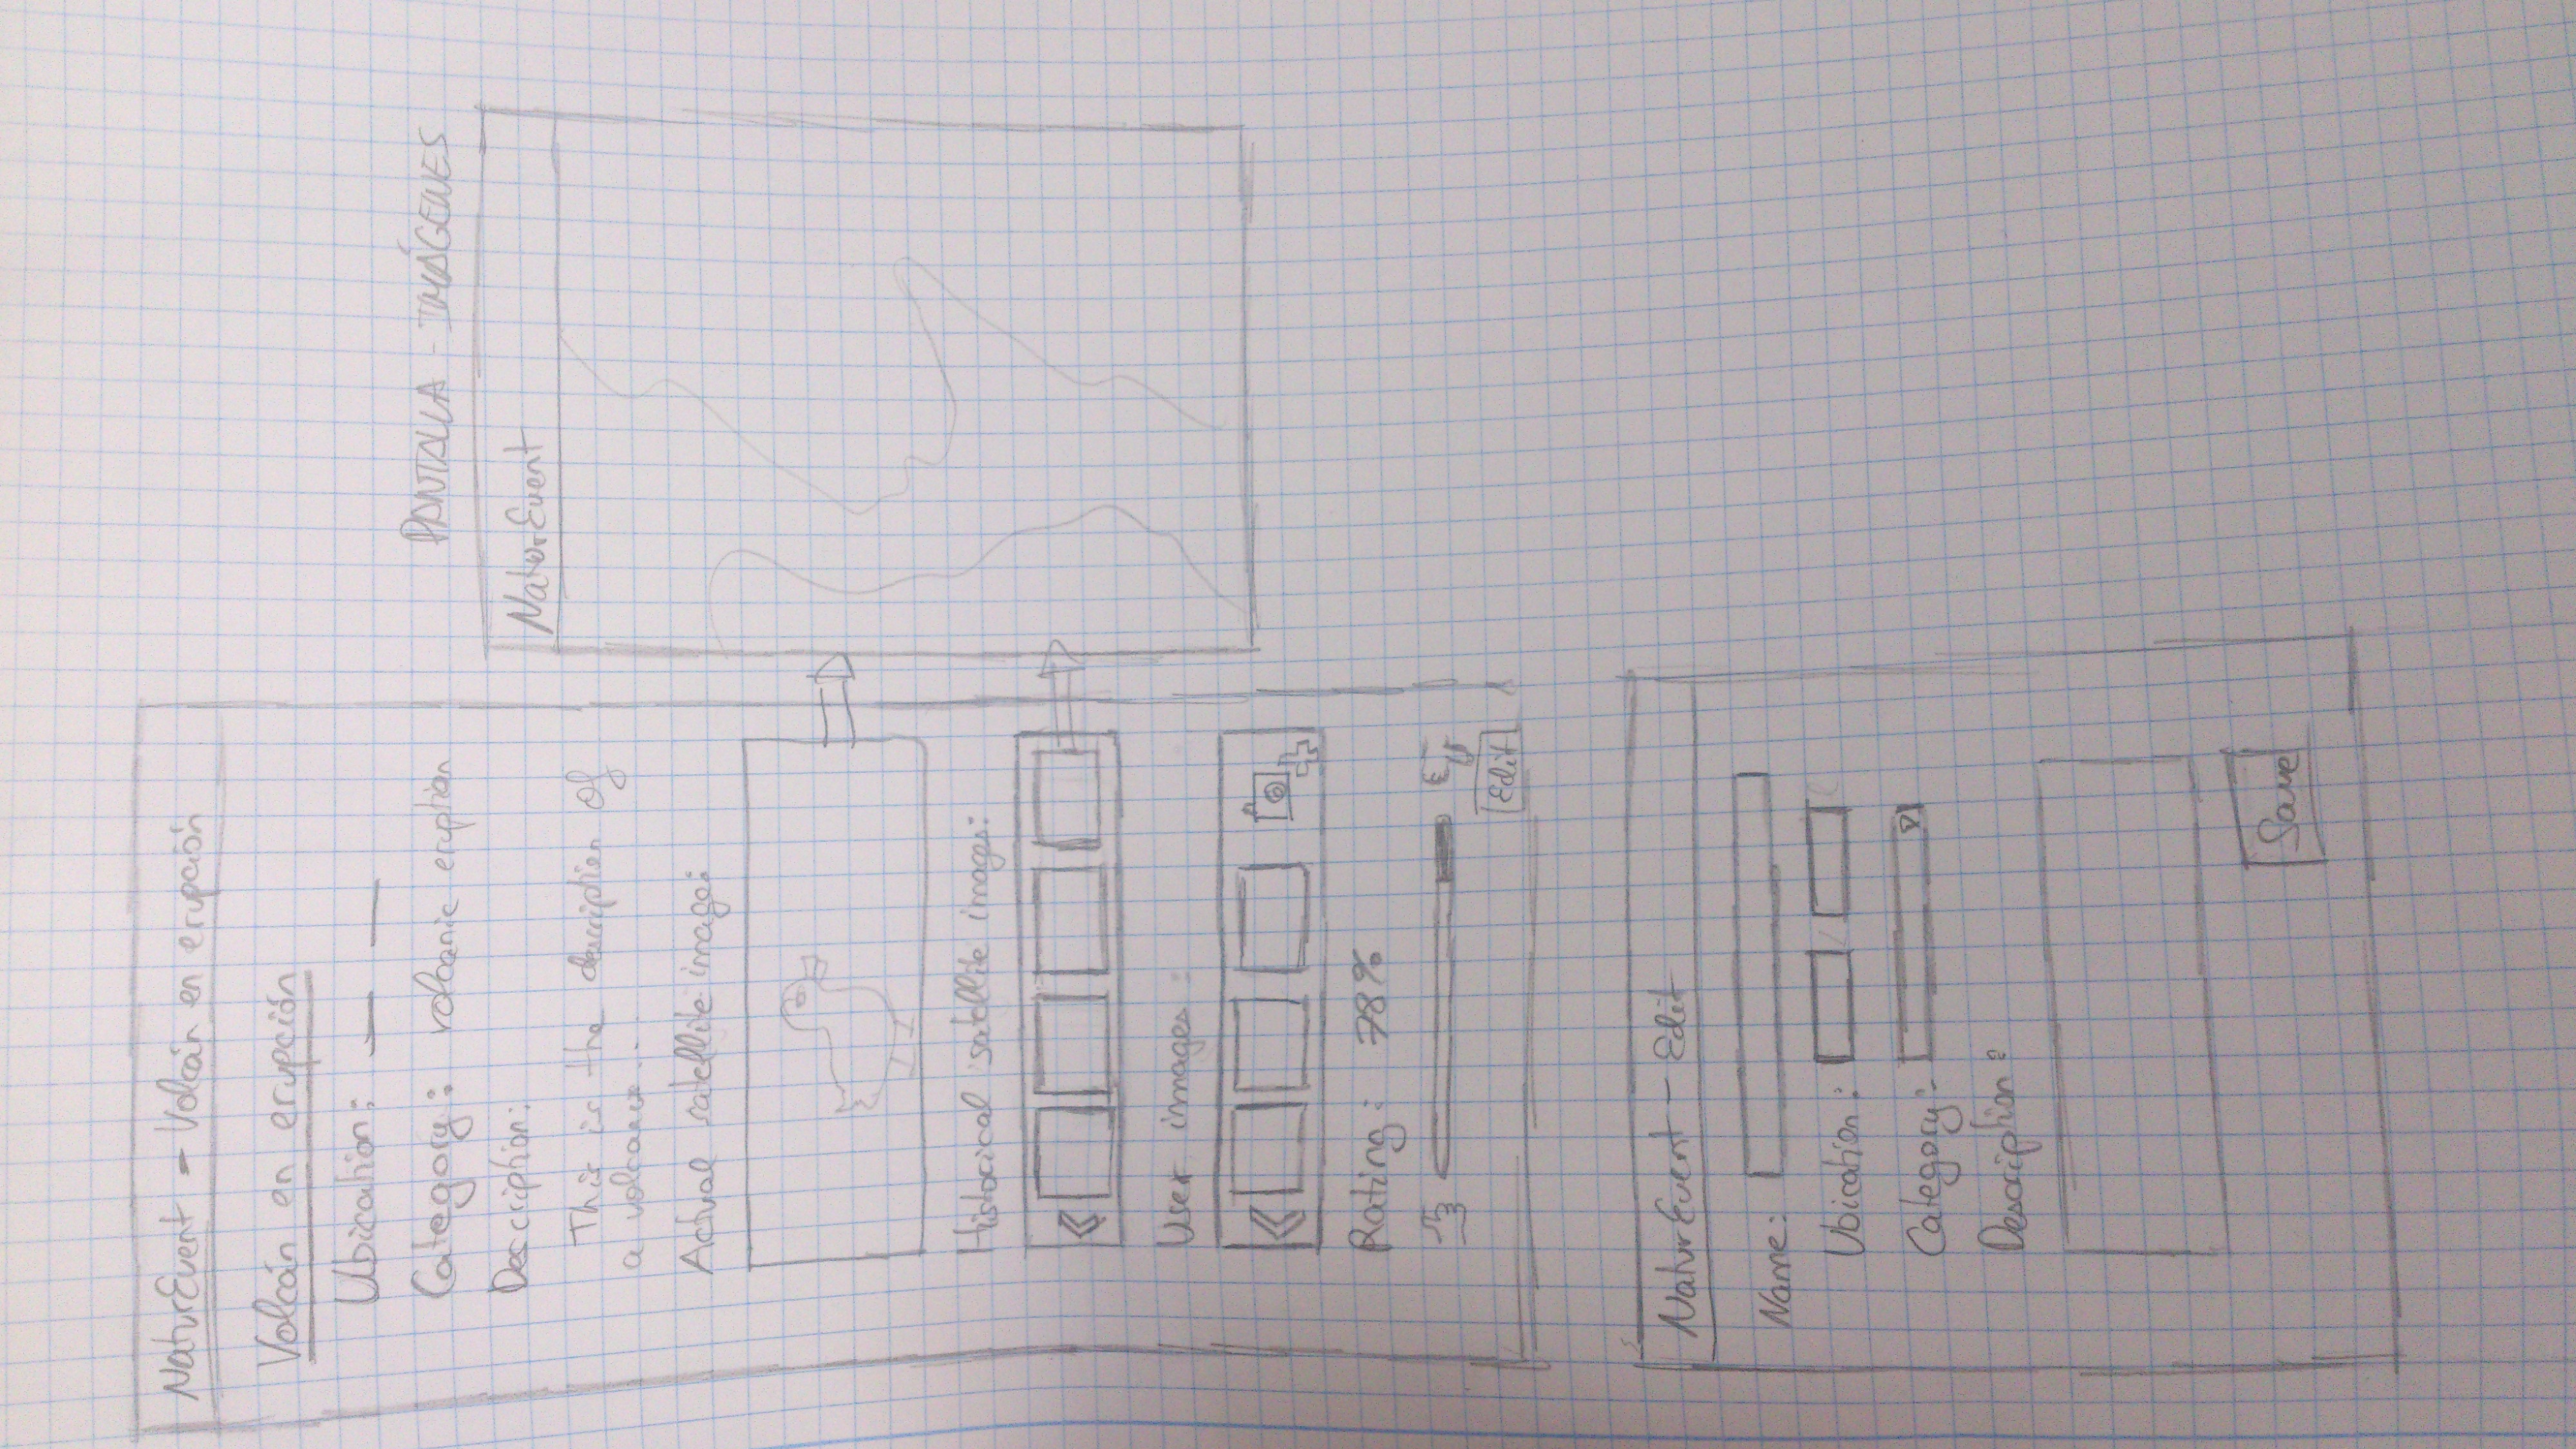 NaturEvent - Volcán en erupción
Volcán en erupción
Ubication: __ __
Category: volcanic eruption
Description:
This is the description of
a volcano...
Actual satellite image:
Historical satellite images:
User images:
Rating: 78%
Edit
PANTALLA - IMÁGENES
NaturEvent
NaturEvent - Edit
Name:
Ubication:
Category:
Description:
Save